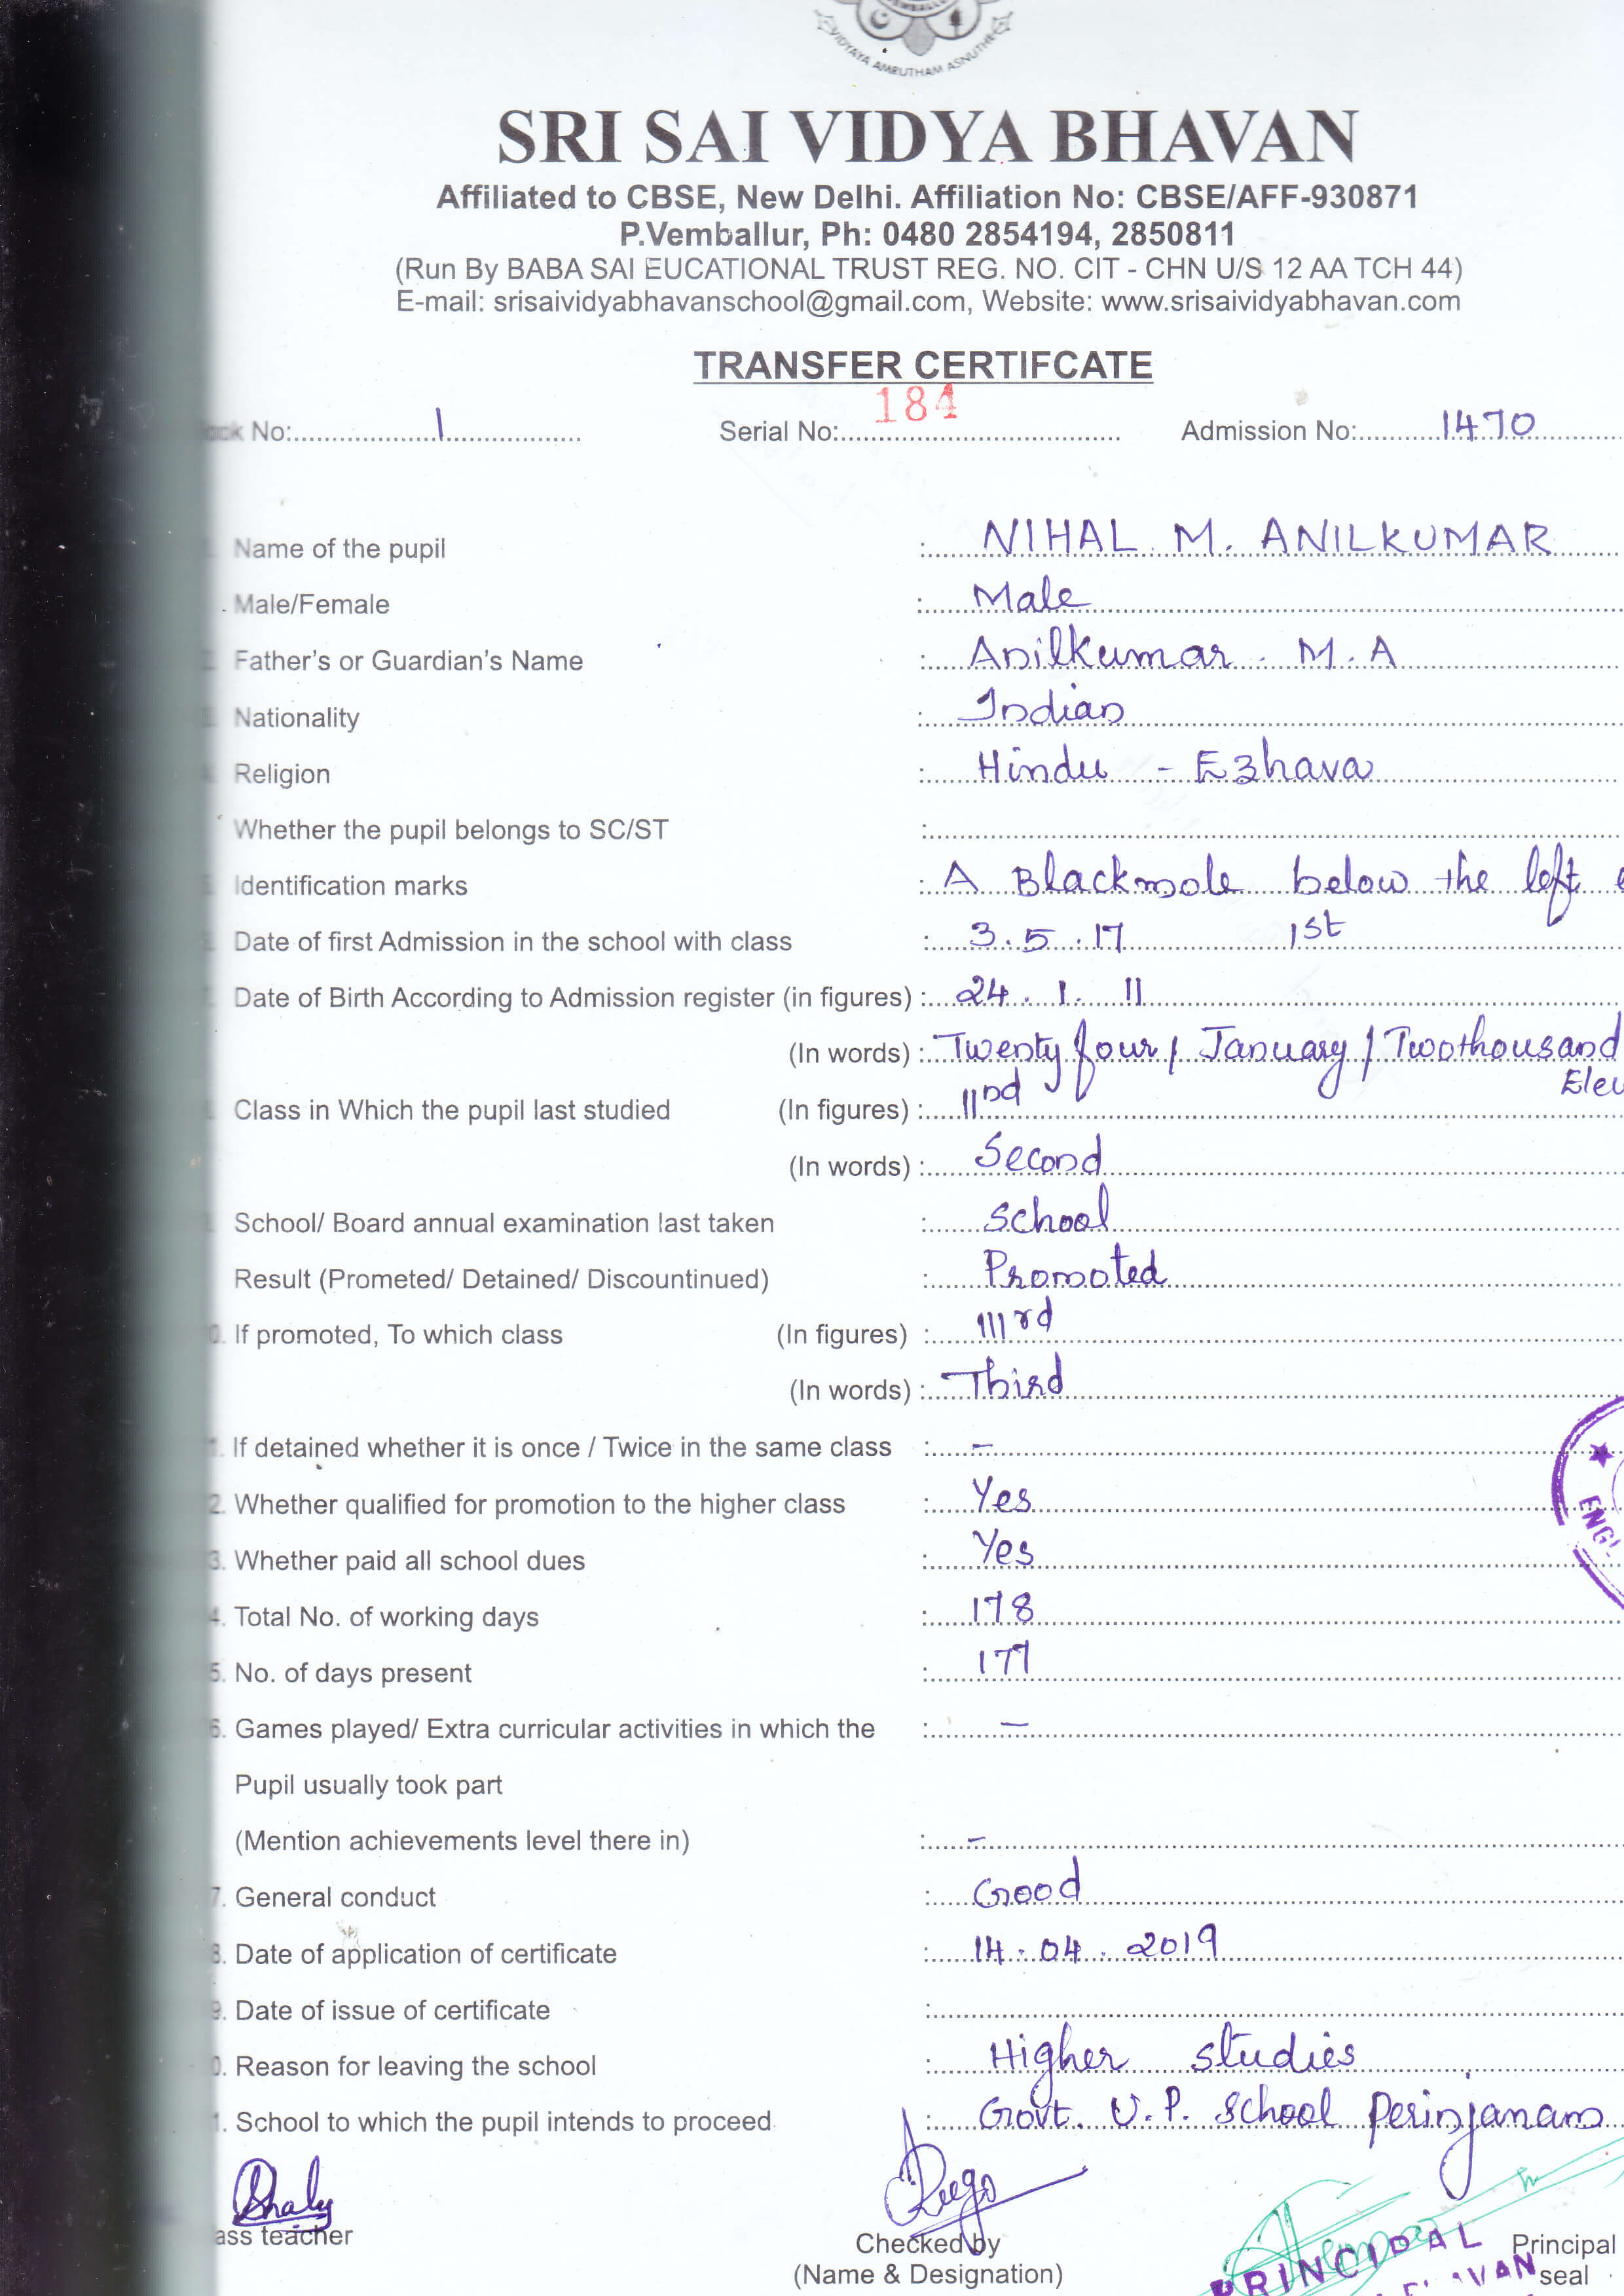 VIDYAYA AMRUTHAM ASNUTHE
SRI SAI VIDYA BHAVAN
Affiliated to CBSE, New Delhi. Affiliation No: CBSE/AFF-930871
P.Vemballur, Ph: 0480 2854194, 2850811
(Run By BABA SAI EUCATIONAL TRUST REG. NO. CIT - CHN U/S 12 AA TCH 44)
E-mail: srisaividyabhavanschool@gmail.com, Website: www.srisaividyabhavan.com
TRANSFER CERTIFCATE
No: 1 Serial No: 184 Admission No: 1470
Name of the pupil : NIHAL M. ANILKUMAR
Male/Female : Male
Father's or Guardian's Name : Anilkumar. M.A
Nationality : Indian
Religion : Hindu - Ezhava
Whether the pupil belongs to SC/ST :
Identification marks : A Blackmole below the left
Date of first Admission in the school with class : 3.5.17 1st
Date of Birth According to Admission register (in figures) : 24.1.11
(In words) : Twenty four / January / Twothousand
Elev
Class in Which the pupil last studied (In figures) : IInd
(In words) : Second
School/ Board annual examination last taken : School
Result (Prometed/ Detained/ Discountinued) : Promoted
If promoted, To which class (In figures) : IIIrd
(In words) : Third
If detained whether it is once / Twice in the same class : -
2. Whether qualified for promotion to the higher class : Yes
3. Whether paid all school dues : Yes
4. Total No. of working days : 178
5. No. of days present : 177
6. Games played/ Extra curricular activities in which the : -
Pupil usually took part
(Mention achievements level there in) : -
7. General conduct : Good
8. Date of application of certificate : 14.04.2019
9. Date of issue of certificate :
0. Reason for leaving the school : Higher studies
1. School to which the pupil intends to proceed : Govt. U.P. School Perinjanam
ass teacher Checked by Principal
(Name & Designation) seal
PRINCIPAL
AVAN
ENGL